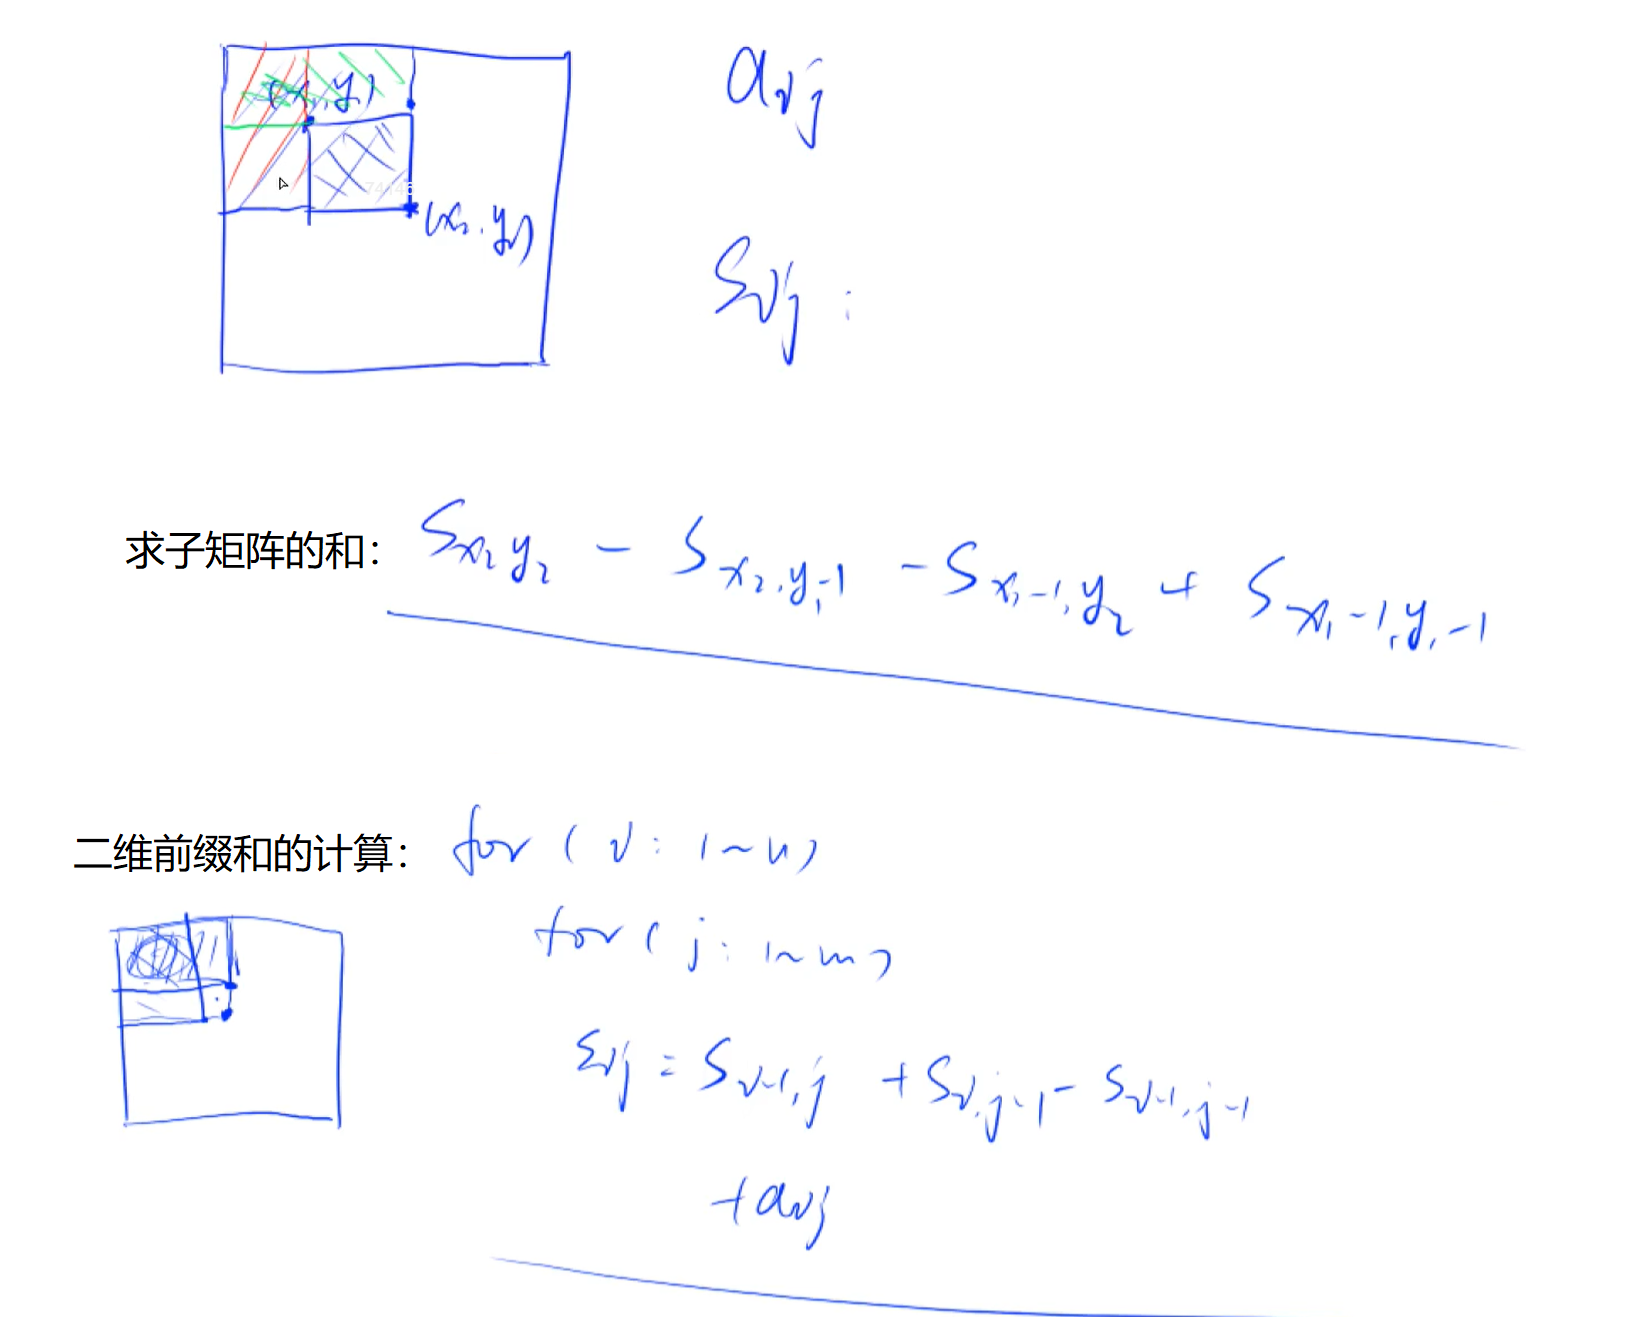 a_ij
(x₁, y₁)
(x₂, y₂)
S_ij :
求子矩阵的和： S_x₂y₂ - S_x₂,y₁-1 - S_x₁-1,y₂ + S_x₁-1,y₁-1
二维前缀和的计算： for ( i : 1~n )
for ( j : 1~m )
S_ij = S_i-1,j + S_i,j-1 - S_i-1,j-1
+ a_ij